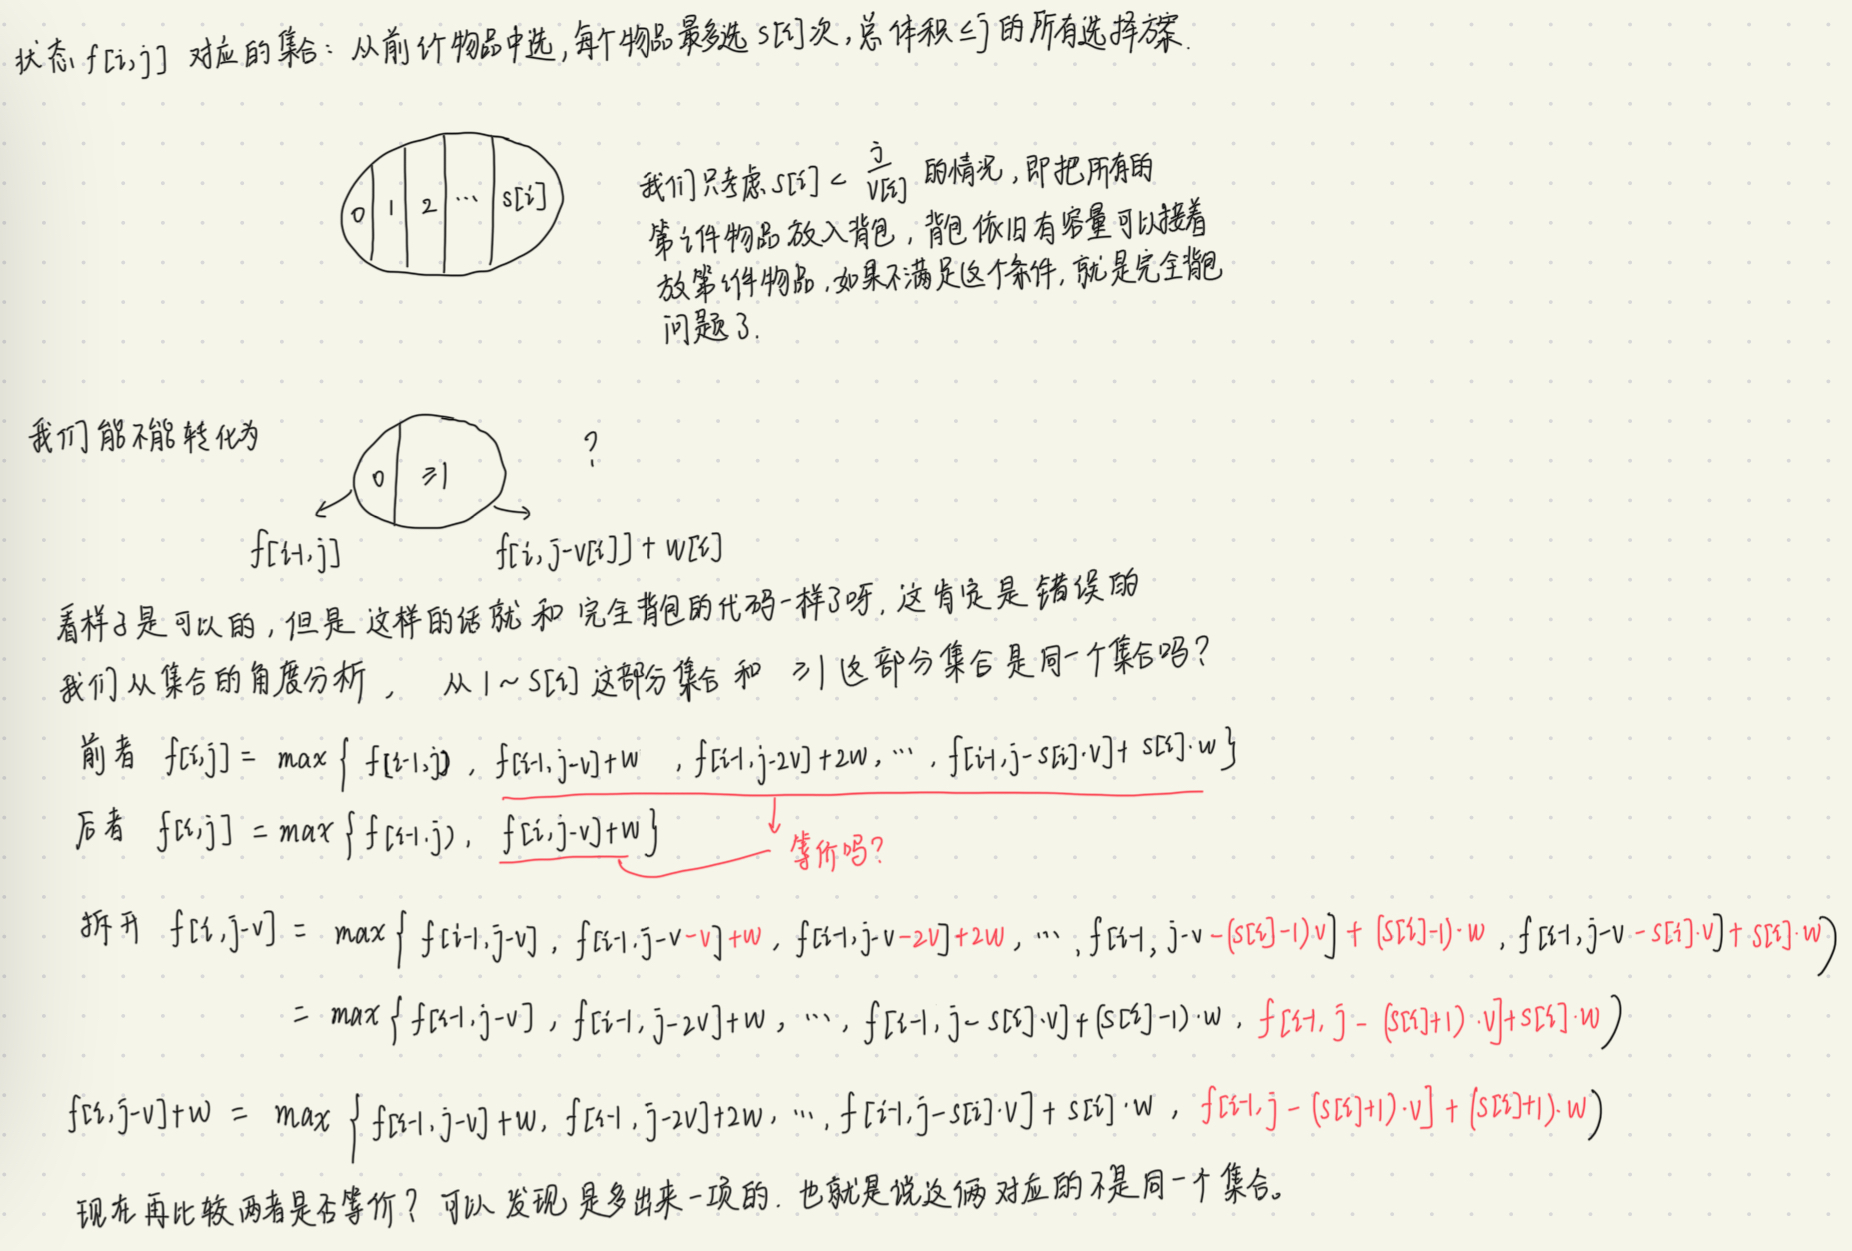 状态 f[i,j] 对应的集合：从前 i 个物品中选，每个物品最多选 s[i]次，总体积≤j 的所有选择方案.
0 1 2 ⋯ s[i]
我们只考虑 s[i] < j/v[i] 的情况，即把所有的
第 i 件物品放入背包，背包依旧有容量可以接着
放第 i 件物品，如果不满足这个条件，就是完全背包
问题了.
我们能不能转化为 0 ≥1 ?
f[i-1,j] f[i,j-v[i]]+w[i]
看样子是可以的，但是这样的话就和完全背包的代码一样了呀，这肯定是错误的
我们从集合的角度分析， 从 1~s[i] 这部分集合和 ≥1 这部分集合是同一个集合吗？
前者 f[i,j] = max{ f[i-1,j), f[i-1,j-v]+w , f[i-1,j-2v]+2w, ⋯, f[i-1,j-s[i]·v]+s[i]·w}
后者 f[i,j] = max{f[i-1.j), f[i,j-v]+w}
等价吗？
拆开 f[i,j-v] = max{ f[i-1,j-v], f[i-1.j-v-v]+w, f[i-1,j-v-2v]+2w, ⋯, f[i-1, j-v-(s[i]-1)·v]+(s[i]-1)·w, f[i-1,j-v-s[i]·v]+s[i]·w)
= max{f[i-1,j-v], f[i-1,j-2v]+w, ⋯, f[i-1,j-s[i]·v]+(s[i]-1)·w, f[i-1,j-(s[i]+1)·v]+s[i]·w)
f[i,j-v]+w = max{f[i-1,j-v]+w, f[i-1,j-2v]+2w, ⋯, f[i-1,j-s[i]·v]+s[i]·w, f[i-1,j-(s[i]+1)·v]+(s[i]+1)·w)
现在再比较两者是否等价？可以发现是多出来一项的. 也就是说这俩对应的不是同一个集合。